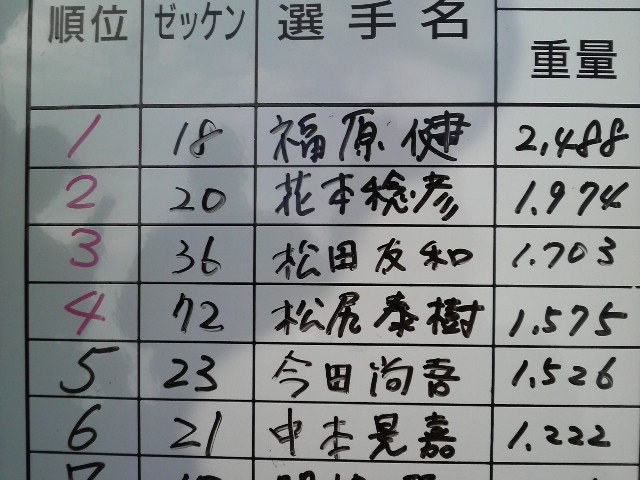 順位 ゼッケン 選手名 重量
1 18 福原健 2,488
2 20 花本稔彦 1.974
3 36 松田友和 1.703
4 72 松尻泰樹 1.575
5 23 今田尚喜 1.526
6 21 中本晃嘉 1.222